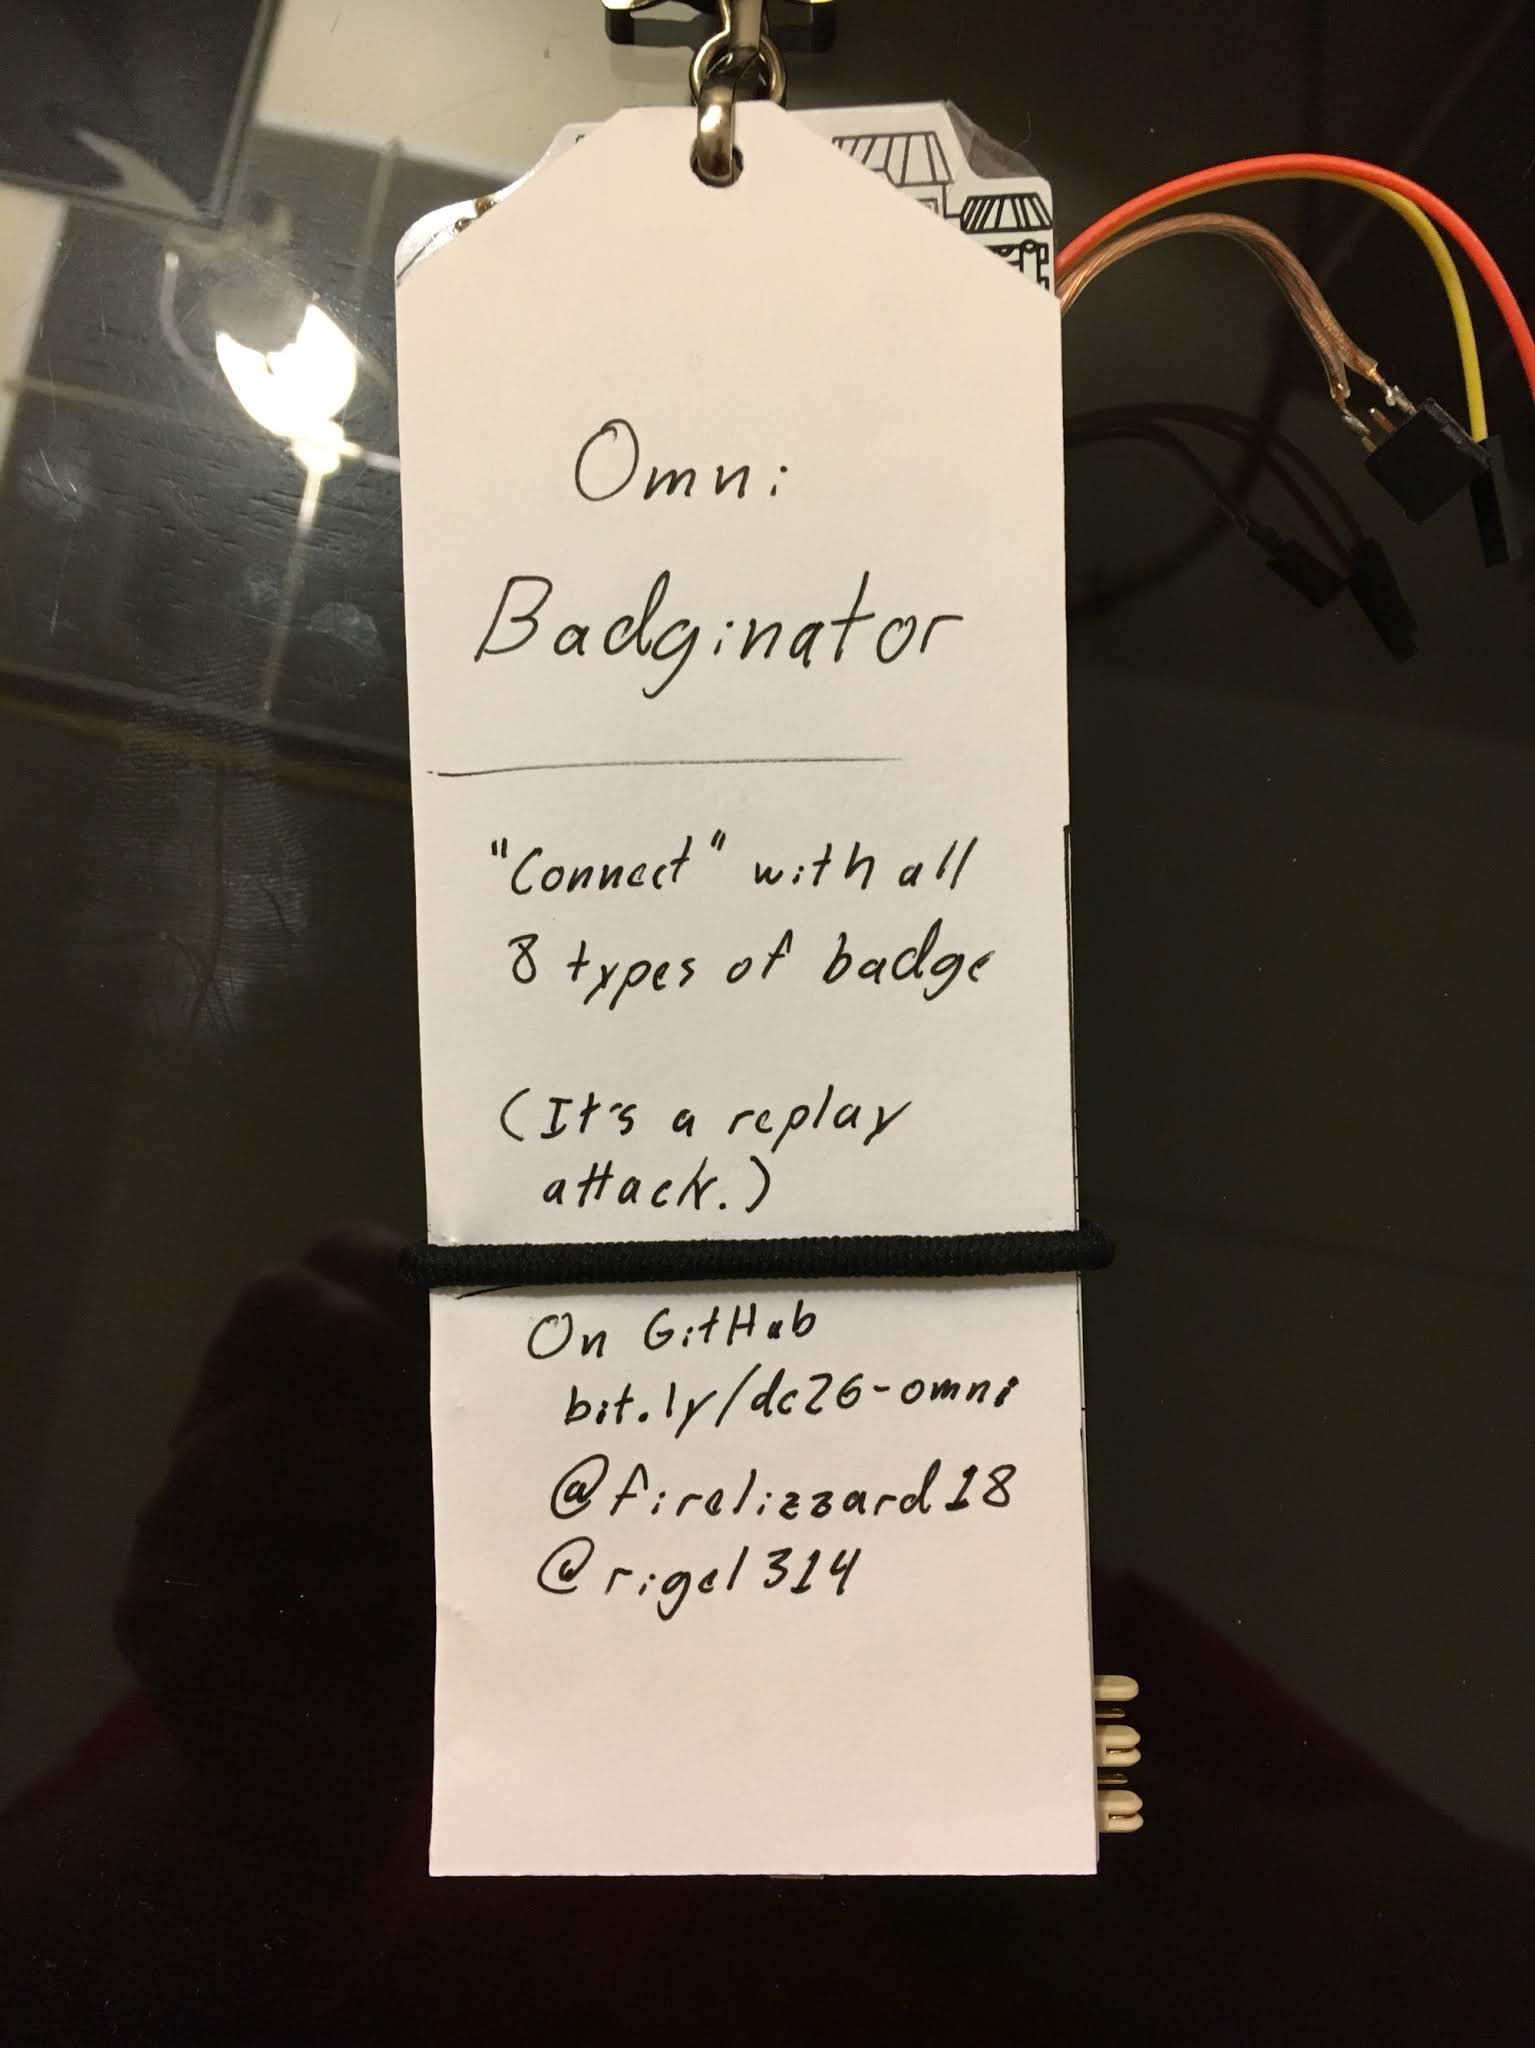 Omni
Badginator
"Connect" with all
8 types of badge
(It's a replay
attack.)
On GitHub
bit.ly/dc26-omni
@firelizzard18
@rigel314